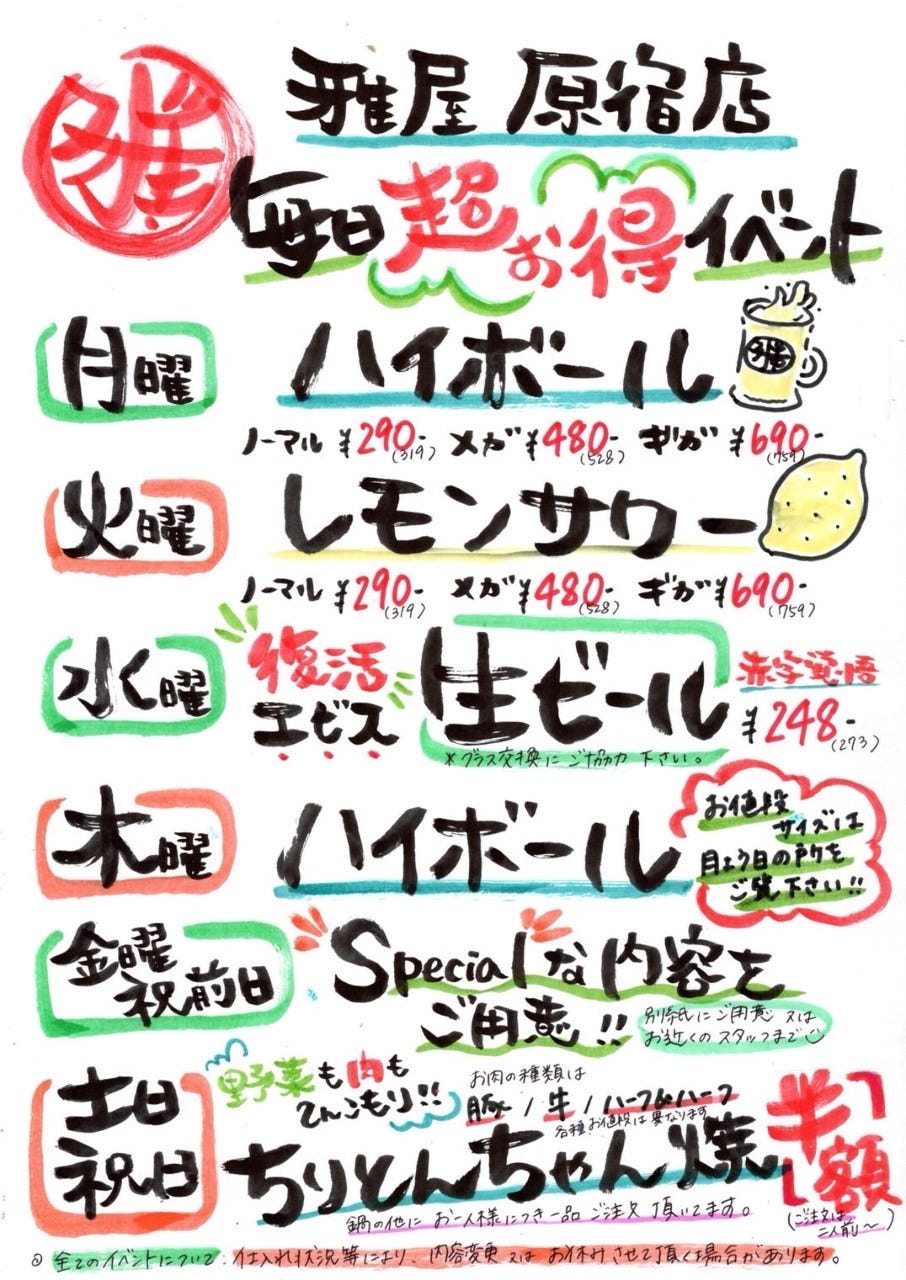 雅
雅屋 原宿店
毎日超お得イベント
月曜 ハイボール
雅
ノーマル ¥290- (319) メガ ¥480- (528) ギガ ¥690- (759)
火曜 レモンサワー
ノーマル ¥290- (319) メガ ¥480- (528) ギガ ¥690- (759)
水曜 復活 エビス 生ビール 赤字覚悟
¥248- (273)
*グラス交換にご協力下さい。
木曜 ハイボール
お値段
サイズは
月よう日の所を
ご覧下さい!!
金曜 祝前日
Specialな内容を
ご用意!!
別紙にご用意 又は
お近くのスタッフまで
土日 祝日
野菜も肉も
てんこもり!!
お肉の種類は
豚/牛/ハーフ&ハーフ
各種お値段は異なります
ちりとんちゃん焼 半額
鍋の他にお一人様につき一品ご注文頂いてます。
(ご注文は
二人前〜)
全てのイベントについて:仕入れ状況等により、内容変更又はお休みさせて頂く場合があります。